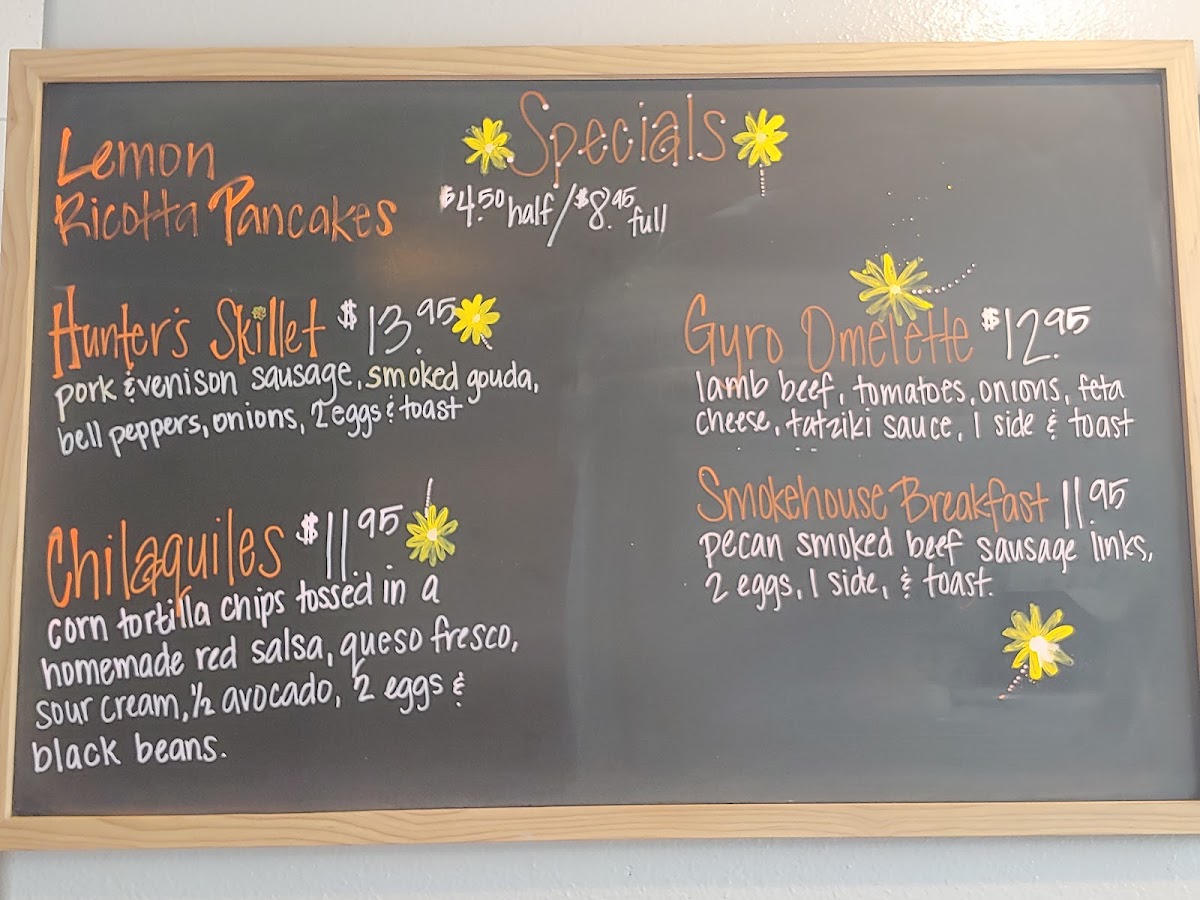 Specials
Lemon
Ricotta Pancakes $4.50 half/$8.95 full
Hunter's Skillet $13.95
pork & venison sausage, smoked gouda,
bell peppers, onions, 2 eggs & toast
Chilaquiles $11.95
corn tortilla chips tossed in a
homemade red salsa, queso fresco,
sour cream, ½ avocado, 2 eggs &
black beans.
Gyro Omelette $12.95
lamb beef, tomatoes, onions, feta
cheese, tatziki sauce, 1 side & toast
Smokehouse Breakfast 11.95
pecan smoked beef sausage links,
2 eggs, 1 side, & toast.